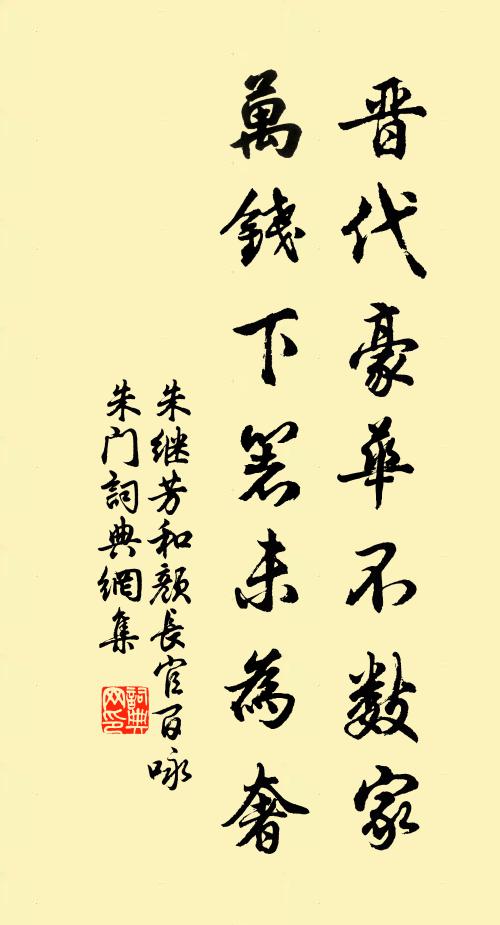 晋代豪華不数家
萬錢下箸未為奢
朱继芳和颜長官百咏
朱门詞典網集
詞典網印